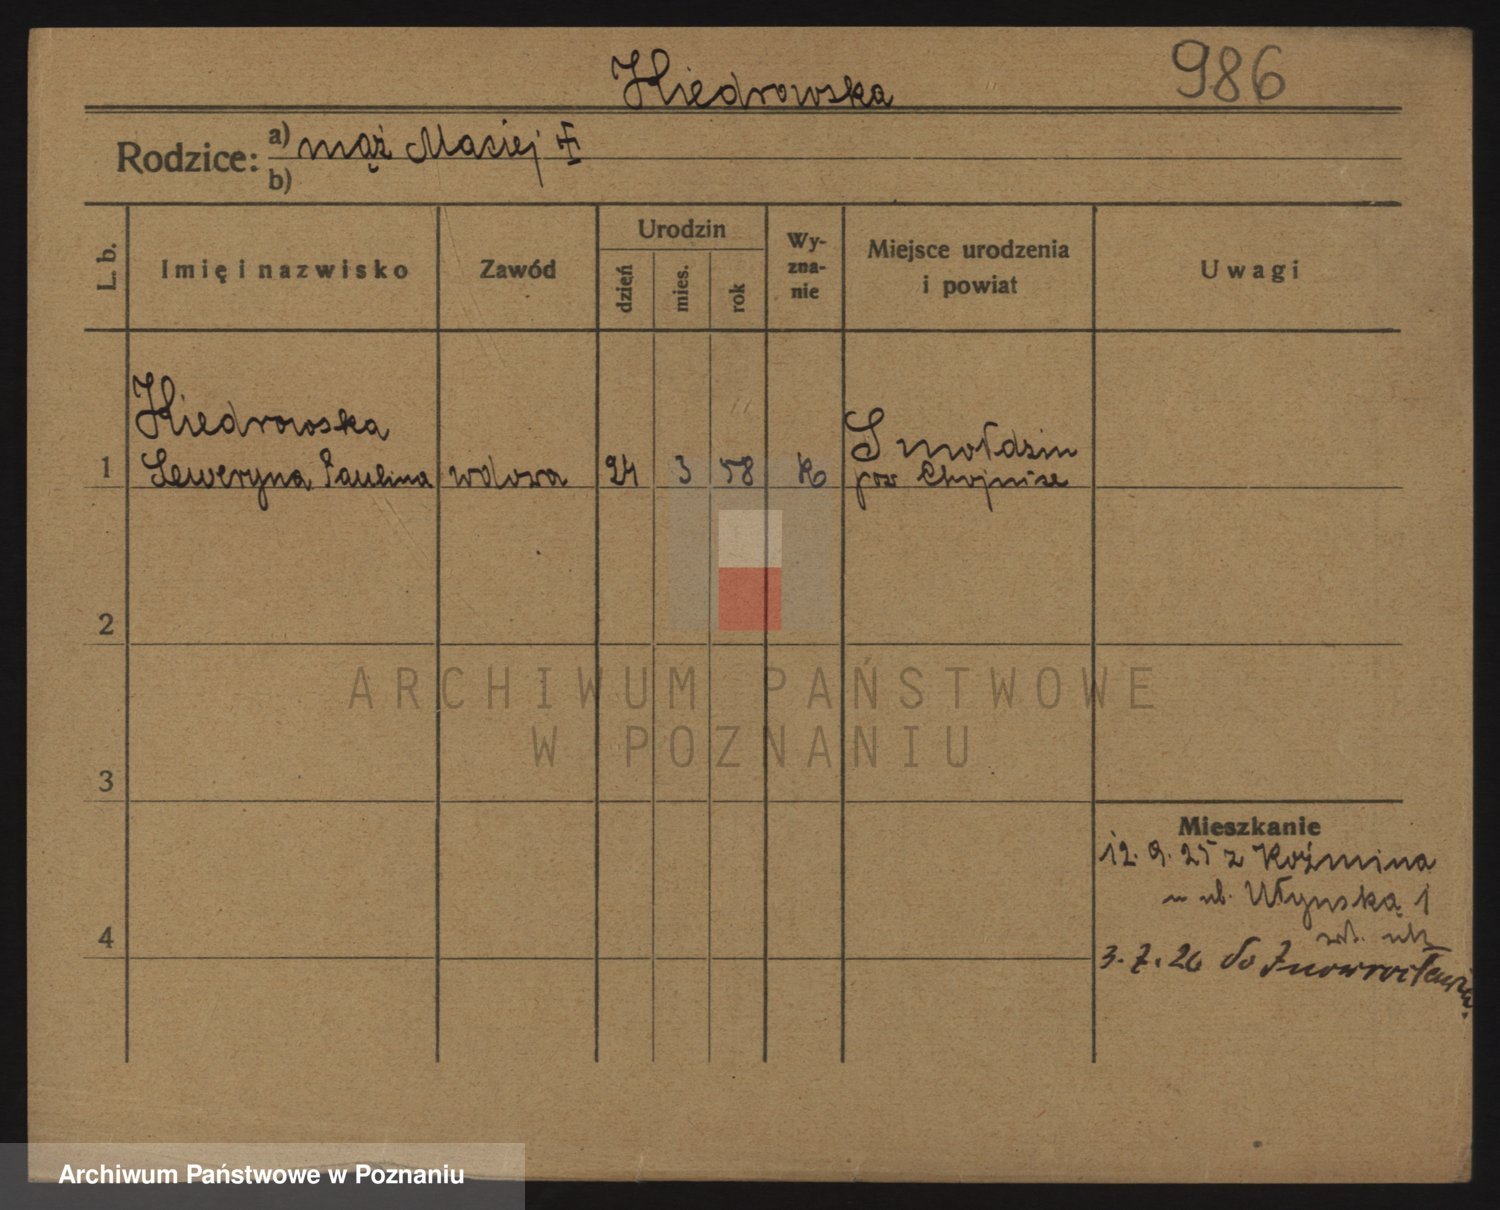 Kiedrowska 986
Rodzice: a) mąż Maciej
b)
L. b. Imię i nazwisko Zawód Urodzin dzień mies. rok Wy-zna-nie Miejsce urodzenia i powiat Uwagi
Kiedrowska
1 Seweryna Paulina wdowa 24 3 58 K Smołdzin
pow Chojnice
2
3
4
Mieszkanie
12. 9. 25 z Koźmina
ul. Młyńską 1
3. 7. 26 do Inowrocławia.
ARCHIWUM PAŃSTWOWE
W POZNANIU
Archiwum Państwowe w Poznaniu